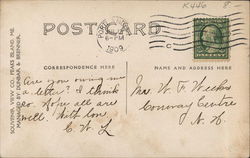 K446 8-
POST CARD
6-PM
1909
CORRESPONDENCE HERE
NAME AND ADDRESS HERE
SOUVENIR VIEW CO., PEAKS ISLAND, ME.
MANUFACTURED BY DUNBAR & BRENNER.
Are you owing me
a letter? I think
so. Hope all are
well. With love
C. W. L.
Mrs. W. F. Weeks
Conway Centre
N. H.